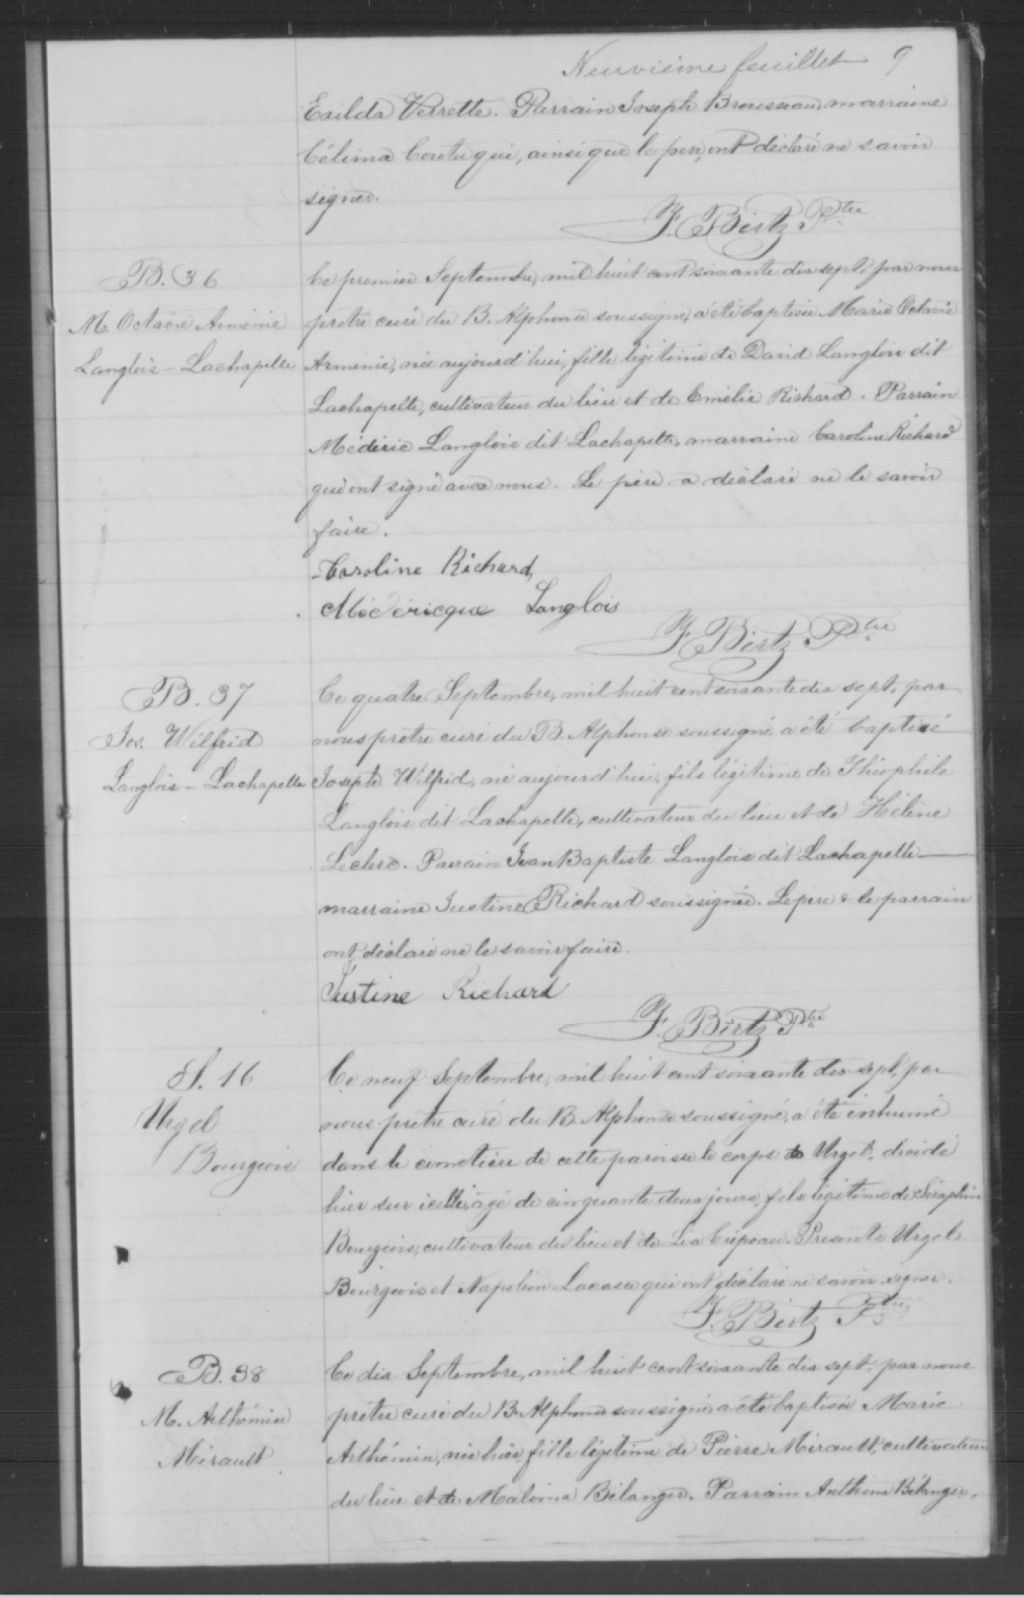 Neuvième feuillet 9
Exilda Verrette. Parrain Joseph Brousseau marraine
Célima Coutu qui, ainsi que le père, ont déclaré ne savoir
signer.
F. Birtz Ptre
B. 36
M. Octavie Arménie
Langlois - Lachapelle
Ce premier Septembre, mil huit cent soixante dix sept, par nous
prêtre curé du B. Alphonse soussigné, a été baptisée Marie Octavie
Armenie, née aujourd'hui, fille légitime de David Langlois dit
Lachapelle, cultivateur du lieu et de Emélie Richard. Parrain
Médéric Langlois dit Lachapelle, marraine Caroline Richard
qui ont signé avec nous. Le père a déclaré ne le savoir
faire.
Caroline Richard
Médéricque Langlois
F. Birtz Ptre
B. 37
Jos. Wilfrid
Langlois - Lachapelle
Ce quatre Septembre, mil huit cent soixante dix sept, par
nous prêtre curé du B. Alphonse soussigné a été baptisé
Joseph Wilfrid, né aujourd'hui, fils légitime de Théophile
Langlois dit Lachapelle, cultivateur du lieu et de Hélène
Leclerc. Parrain Jean Baptiste Langlois dit Lachapelle
marraine Justine Richard soussignée. Le père & le parrain
ont déclaré ne le savoir faire.
Justine Richard
F. Birtz Ptre
S. 16
Urgel
Bourgeois
Ce neuf Septembre, mil huit cent soixante dix sept, par
nous prêtre curé du B. Alphonse soussigné, a été inhumé
dans le cimetière de cette paroisse le corps de Urgel, décédé
hier sur icelle, âgé de cinquante deux jours, fils légitime de Séraphin
Bourgeois, cultivateur du lieu et de Lea Crépeau. Presents Urgel
Bourgeois et Napoléon Lacasse qui ont déclaré ne savoir signer.
F. Birtz Ptre
B. 38
M. Arthémise
Mirault
Ce dix Septembre, mil huit cent soixante dix sept, par nous
prêtre curé du B. Alphonse soussigné a été baptisée Marie
Arthémise, née hier, fille légitime de Pierre Mirault, cultivateur
du lieu et de Malvina Bélanger. Parrain Anthime Bélanger,